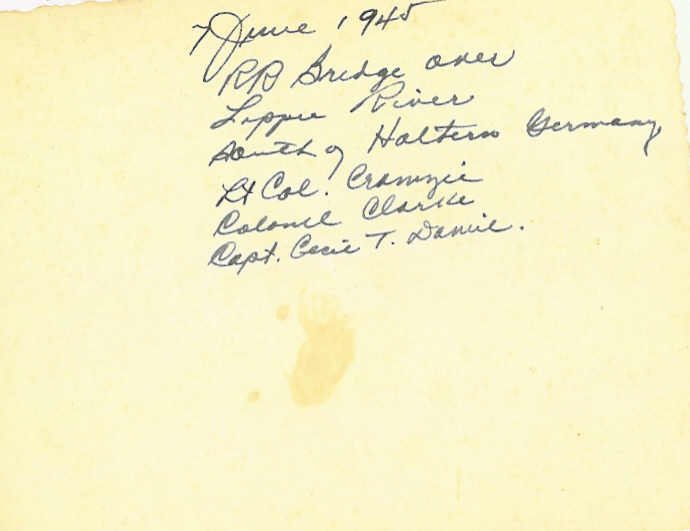 7 June 1945
RR Bridge over
Lippe River
South of Haltern Germany
Lt Col.
Colonel Clarke
Capt. Cecil T. Daniel.